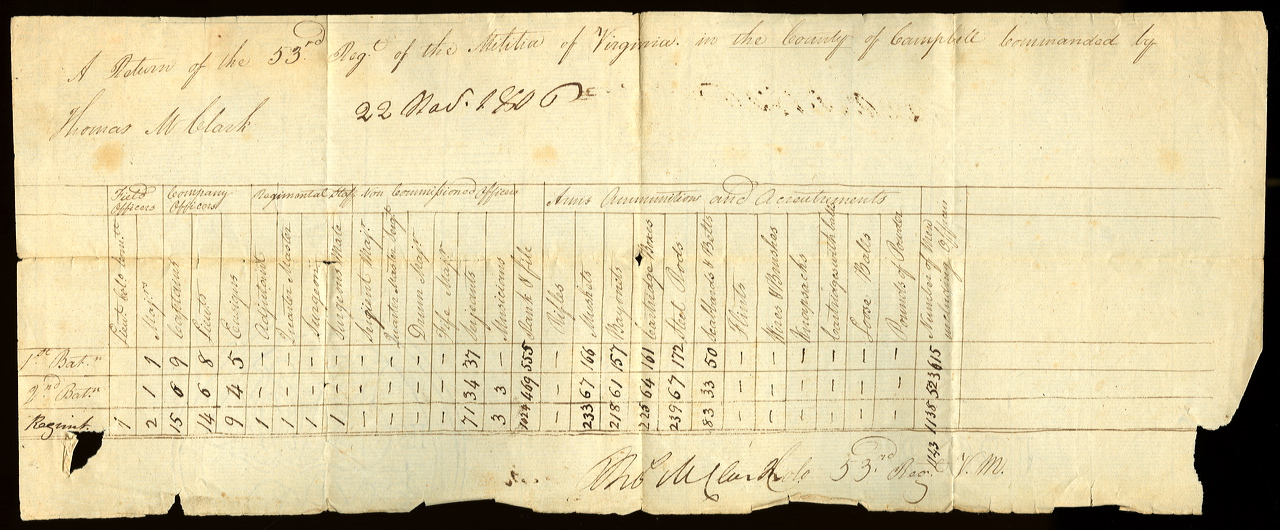 A Return of the 53rd Regt of the Militia of Virginia. in the County of Campbell Commanded by
Thomas M Clark 22 Nov. 1806
Field Officers Company Officers Regimental Staff Non Commissioned Officers Arms Ammunitions and Accoutrements
Lieut Colo Commt Majrs Captains Lieuts Ensigns Adjutant Quarter Master Surgeon Surgeons Mate Serjent Majr Quarter Master Sergt Drum Majr Fife Majr Serjeants Musicians Rank & file Rifles Muskets Bayonets Cartridge Boxes Steel Rods Scabbards & Belts Flints Wires & Brushes Knapsacks Cartridges with balls Loose Balls Pounds of Powder Number of Men including Officers
1st Batn 1 9 8 5 – – – – – – – – 37 – 555 – 166 157 161 172 50 – – – – – – 615
2nd Batn 1 6 6 4 – – – – – – – – 34 3 469 – 67 61 64 67 33 – – – – – – 523
Regimt. 1 2 15 14 9 1 1 1 1 – – – – 71 3 1024 – 233 218 225 239 83 – – – – – – 1138
1143
Tho M Clark Colo 53rd Regt V. M.